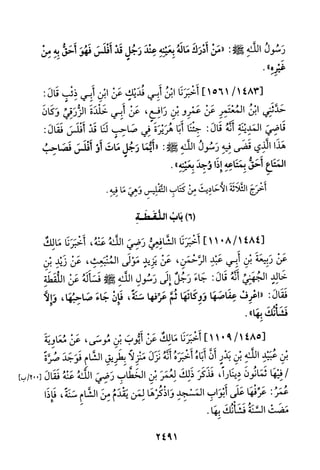 رَسُولُ اللَّهِ ﷺ: «مَنْ أَدْرَكَ مَالَهُ بِعَيْنِهِ عِنْدَ رَجُلٍ قَدْ أَفْلَسَ فَهُوَ أَحَقُّ بِهِ مِنْ
غَيْرِهِ».
[١٥٦١/١٤٨٣] أَخْبَرَنَا ابْنُ أَبِي فُدَيْكٍ عَنْ ابْنِ أَبِي ذِئْبٍ قَالَ:
حَدَّثَنِي ابْنُ الْمُعْتَمِرِ عَنْ عَمْرِو بْنِ رَافِعٍ، عَنْ أَبِي خَلْدَةَ الزُّرَقِيِّ وَكَانَ
قَاضِيَ الْمَدِينَةِ أَنَّهُ قَالَ: جِئْنَا أَبَا هُرَيْرَةَ فِي صَاحِبٍ لَنَا قَدْ أَفْلَسَ فَقَالَ:
هَذَا الَّذِي قَضَى فِيهِ رَسُولُ اللَّهِ ﷺ: «أَيُّمَا رَجُلٍ مَاتَ أَوْ أَفْلَسَ فَصَاحِبُ
الْمَتَاعِ أَحَقُّ بِمَتَاعِهِ إِذَا وُجِدَ بِعَيْنِهِ».
أَخْرَجَ الثَّلَاثَةَ الْأَحَادِيثَ مِنْ كِتَابِ التَّفْلِيسِ وَهِيَ مَا فِيهِ.
(٦) بَابُ اللُّقَطَةِ
[١١٠٨/١٤٨٤] أَخْبَرَنَا الشَّافِعِيُّ رَضِيَ اللَّهُ عَنْهُ، أَخْبَرَنَا مَالِكٌ
عَنْ رَبِيعَةَ بْنِ أَبِي عَبْدِ الرَّحْمَنِ، عَنْ يَزِيدَ مَوْلَى الْمُنْبَعِثِ، عَنْ زَيْدِ بْنِ
خَالِدٍ الْجُهَنِيِّ أَنَّهُ قَالَ: جَاءَ رَجُلٌ إِلَى رَسُولِ اللَّهِ ﷺ فَسَأَلَهُ عَنِ اللُّقَطَةِ
فَقَالَ: «اعْرِفْ عِفَاصَهَا وَوِكَائَهَا ثُمَّ عَرِّفْهَا سَنَةً، فَإِنْ جَاءَ صَاحِبُهَا، وَإِلَّا
فَشَأْنُكَ بِهَا».
[١١٠٩/١٤٨٥] أَخْبَرَنَا مَالِكٌ عَنْ أَيُّوبَ بْنِ مُوسَى، عَنْ مُعَاوِيَةَ
بْنِ عُبَيْدِ اللَّهِ بْنِ بَدْرٍ أَنَّ أَبَاهُ أَخْبَرَهُ أَنَّهُ نَزَلَ مَنْزِلًا بِطَرِيقِ الشَّامِ فَوَجَدَ صُرَّةً
/ فِيهَا ثَمَانُونَ دِينَاراً، فَذَكَرَ ذَلِكَ لِعُمَرَ بْنِ الْخَطَّابِ رَضِيَ اللَّهُ عَنْهُ فَقَالَ [٢٠٠/ب]
عُمَرُ: عَرِّفْهَا عَلَى أَبْوَابِ الْمَسْجِدِ وَاذْكُرْهَا لِمَنْ يَقْدَمُ مِنَ الشَّامِ سَنَةً، فَإِذَا
مَضَتْ السَّنَةُ فَشَأْنُكَ بِهَا.
٢٤٩١